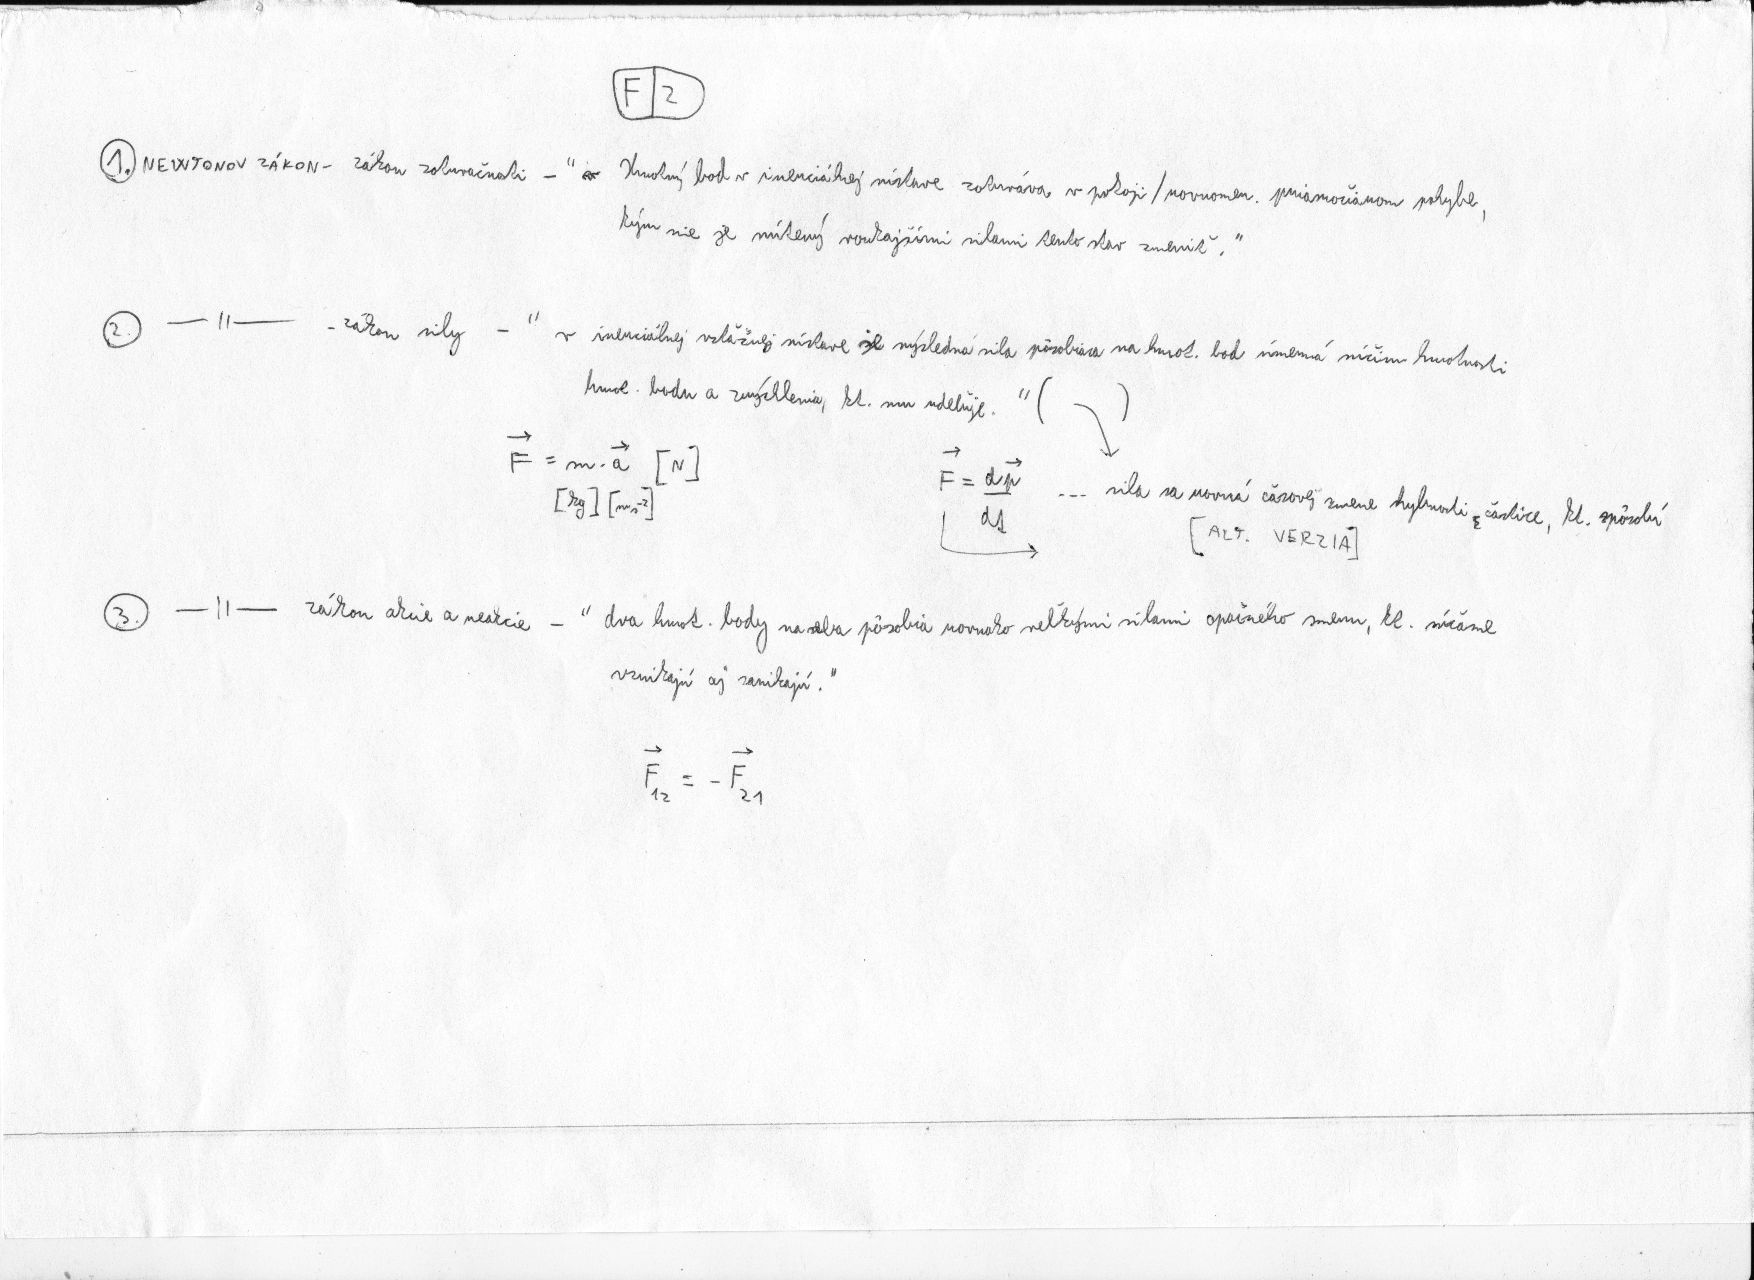 F 2
1. NEWTONOV ZÁKON - zákon zotrvačnosti - " Hmotný bod v inerciálnej sústave zotrváva v pokoji / rovnomer. priamočiarom pohybe,
kým nie je nútený vonkajšími silami tento stav zmeniť."
2. —||— - zákon sily - " v inerciálnej vzťažnej sústave je výsledná sila pôsobiaca na hmot. bod úmerná súčinu hmotnosti
hmot. bodu a zrýchlenia, kt. mu udeľuje. " ( )
F⃗ = m · a⃗ [N]
[kg] [ms⁻²]
F⃗ = dp⃗/dt ... sila sa rovná časovej zmene hybnosti častice, kt. spôsobí
[ALT. VERZIA]
3. —||— zákon akcie a reakcie - " dva hmot. body na seba pôsobia rovnako veľkými silami opačného smeru, kt. súčasne
vznikajú aj zanikajú."
F⃗₁₂ = - F⃗₂₁